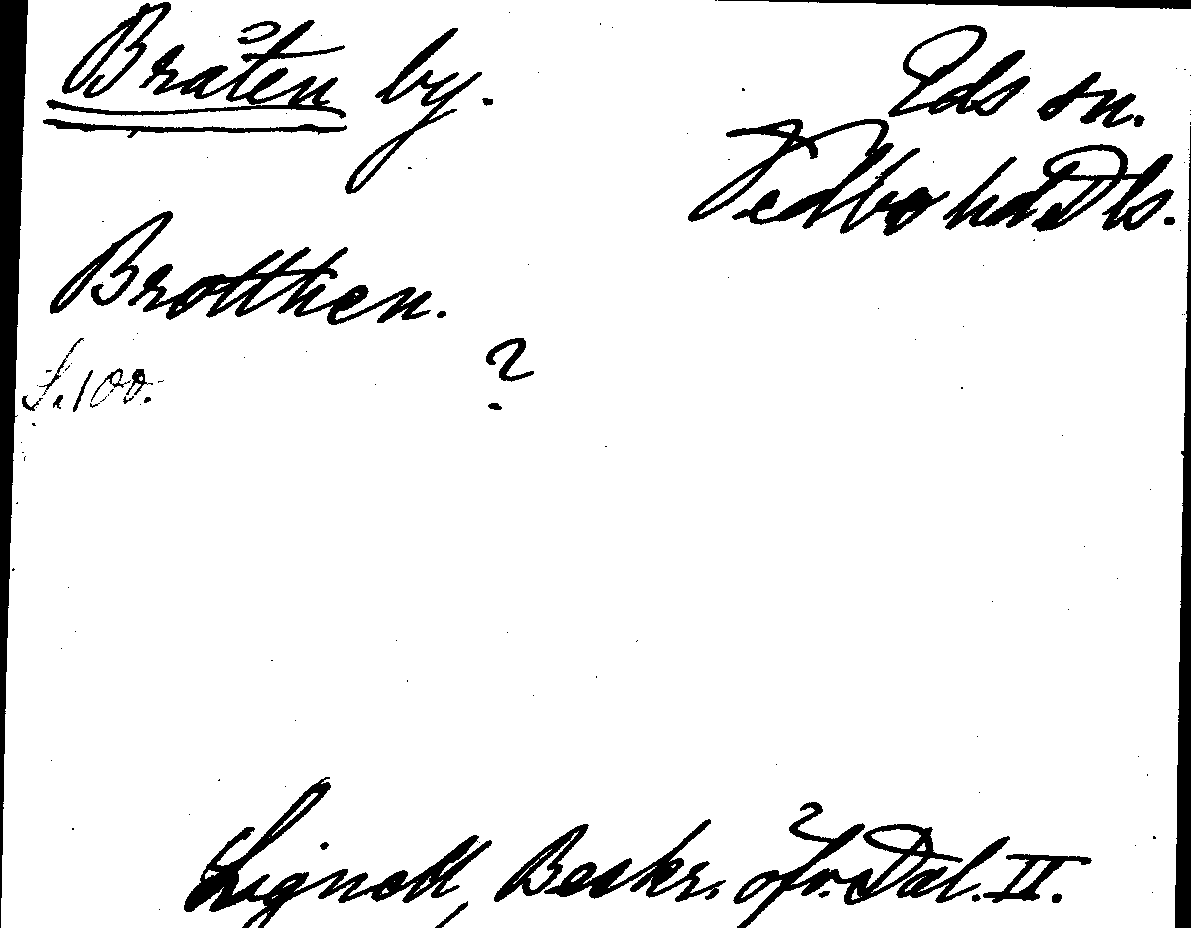 Bråten by.
Eds sn.
Vedbo hd. Dls.
Brotthen.
S. 100.
?
Lignell, Beskr. öfv. Dal. II.